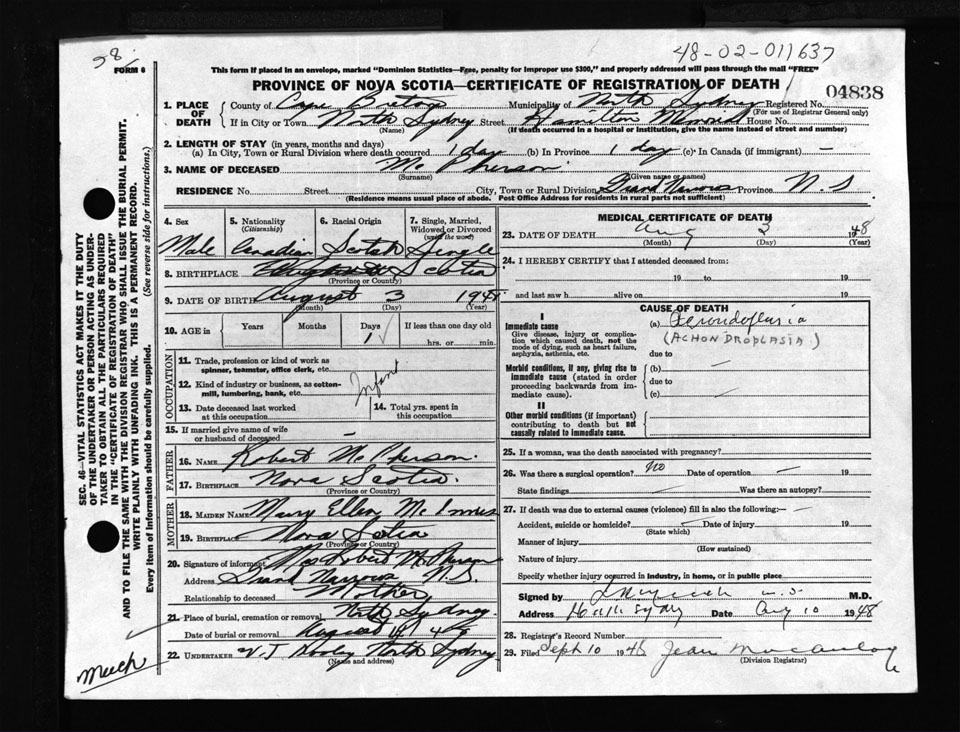 38
48-02-011637
FORM 6
This form if placed in an envelope, marked "Dominion Statistics—Free, penalty for improper use $300," and properly addressed will pass through the mail "FREE"
PROVINCE OF NOVA SCOTIA—CERTIFICATE OF REGISTRATION OF DEATH
04838
1. PLACE OF DEATH
County of Cape Breton Municipality of North Sydney Registered No.
(For use of Registrar General only)
If in City or Town North Sydney Street Hamilton Memorial House No.
(Name) (If death occurred in a hospital or institution, give the name instead of street and number)
2. LENGTH OF STAY (in years, months and days)
(a) In City, Town or Rural Division where death occurred 1 day (b) In Province 1 day (c) In Canada (if immigrant) —
3. NAME OF DECEASED Mc Pherson
(Surname) (Given name or names)
RESIDENCE No. Street City, Town or Rural Division Grand Narrows Province N.S
(Residence means usual place of abode. Post Office Address for residents in rural parts not sufficient)
4. Sex 5. Nationality 6. Racial Origin 7. Single, Married,
(Citizenship) Widowed or Divorced
(write the word)
Male Canadian Scotch Single
8. BIRTHPLACE Scotia
(Province or Country)
9. DATE OF BIRTH August 3 1948
(Month) (Day) (Year)
10. AGE in Years Months Days If less than one day old
1
hrs. or min.
OCCUPATION
11. Trade, profession or kind of work as
spinner, teamster, office clerk, etc.
12. Kind of industry or business, as cotton-
mill, lumbering, bank, etc.
Infant
13. Date deceased last worked
at this occupation
14. Total yrs. spent in
this occupation
15. If married give name of wife
or husband of deceased —
FATHER
16. NAME Robert Mc Pherson
17. BIRTHPLACE Nova Scotia
(Province or Country)
MOTHER
18. MAIDEN NAME Mary Ellen Mc Innis
19. BIRTHPLACE Nova Scotia
(Province or Country)
20. Signature of informant Mrs Robert McPherson
Address Grand Narrows N.S.
Relationship to deceased Mother
21. Place of burial, cremation or removal North Sydney
Date of burial or removal
22. UNDERTAKER North Sydney
(Name and address)
MEDICAL CERTIFICATE OF DEATH
23. DATE OF DEATH Aug 3 1948
(Month) (Day) (Year)
24. I HEREBY CERTIFY that I attended deceased from:
19 to 19
and last saw h alive on 19
CAUSE OF DEATH
I
Immediate cause
Give disease, injury or complica-
tion which caused death, not the
mode of dying, such as heart failure,
asphyxia, asthenia, etc.
(a)
(ACHONDROPLASIA)
due to
Morbid conditions, if any, giving rise to
immediate cause (stated in order
proceeding backwards from im-
mediate cause).
(b) —
due to
(c) —
II
Other morbid conditions (if important)
contributing to death but not
causally related to immediate cause.
25. If a woman, was the death associated with pregnancy?
26. Was there a surgical operation? no Date of operation — 19
State findings — Was there an autopsy?
27. If death was due to external causes (violence) fill in also the following:—
Accident, suicide or homicide? Date of injury 19
(State which)
Manner of injury
(How sustained)
Nature of injury
Specify whether injury occurred in industry, in home, or in public place
Signed by M.D.
Address Date Aug 10 1948
28. Registrar's Record Number
29. Filed Sept 10 1948 Jean
(Division Registrar)
SEC. 46—VITAL STATISTICS ACT MAKES IT THE DUTY
OF THE UNDERTAKER OR PERSON ACTING AS UNDER-
TAKER TO OBTAIN ALL THE PARTICULARS REQUIRED
IN THE "CERTIFICATE OF REGISTRATION OF DEATH"
AND TO FILE THE SAME WITH THE DIVISION REGISTRAR WHO SHALL ISSUE THE BURIAL PERMIT.
WRITE PLAINLY WITH UNFADING INK. THIS IS A PERMANENT RECORD.
Every item of information should be carefully supplied. (See reverse side for instructions.)